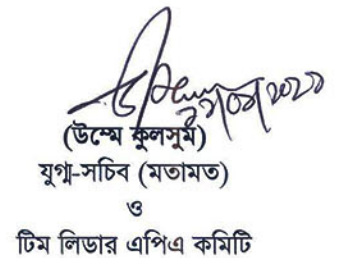 (উম্মে কুলসুম)
যুগ্ম-সচিব (মতামত)
ও
টিম লিডার এপিএ কমিটি